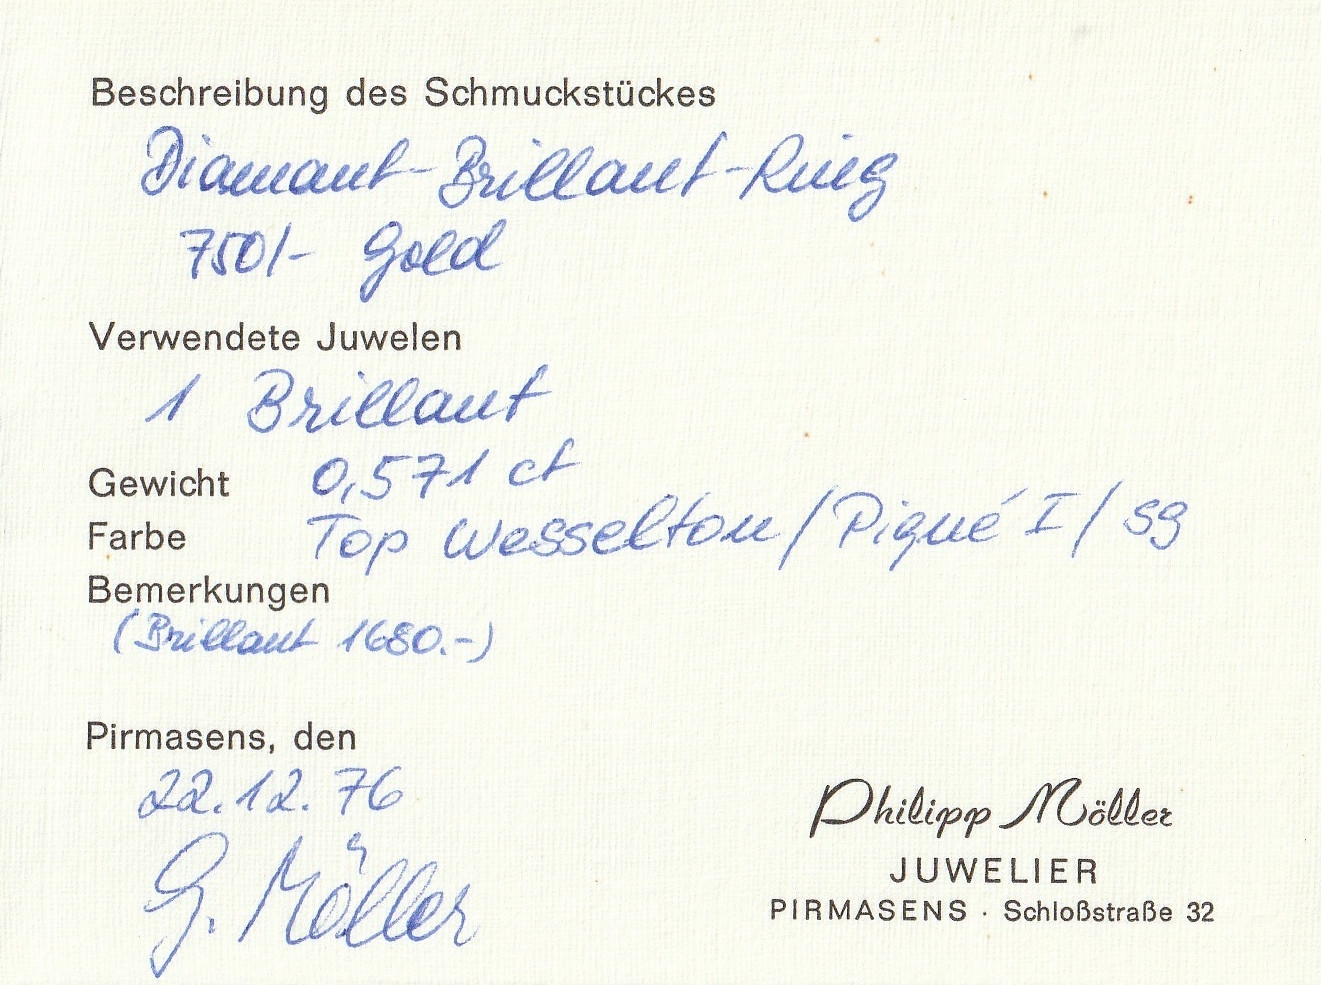 Beschreibung des Schmuckstückes
Diamant-Brillant-Ring
750/- Gold
Verwendete Juwelen
1 Brillant
Gewicht 0,571 ct
Farbe Top Wesselton/Piqué I/sg
Bemerkungen
(Brillant 1680.-)
Pirmasens, den
22.12.76
G. Möller
Philipp Möller
JUWELIER
PIRMASENS · Schloßstraße 32